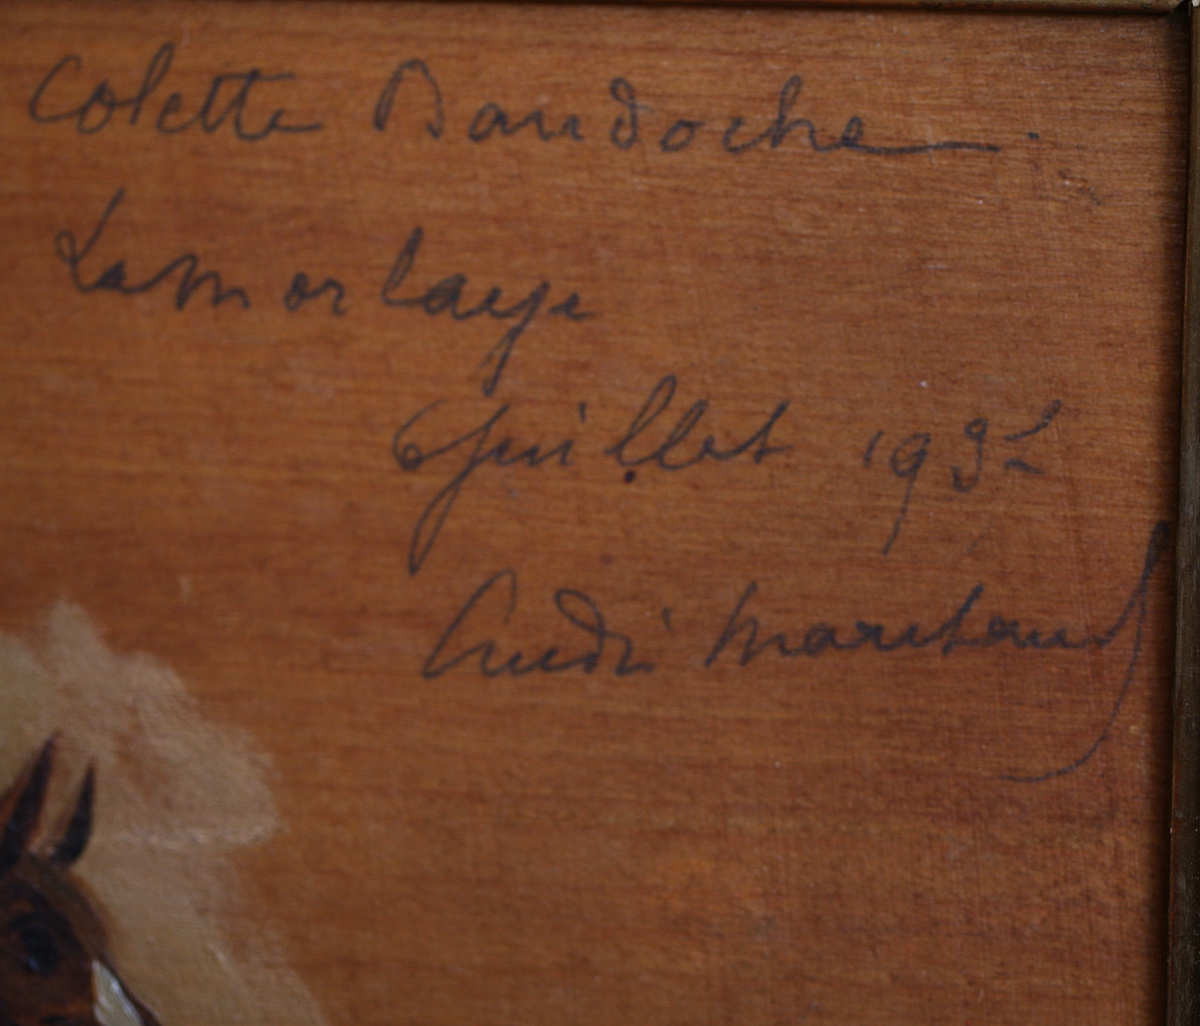 Colette Baudoche
Lamorlaye
6 Juillet 1932
André Marchand